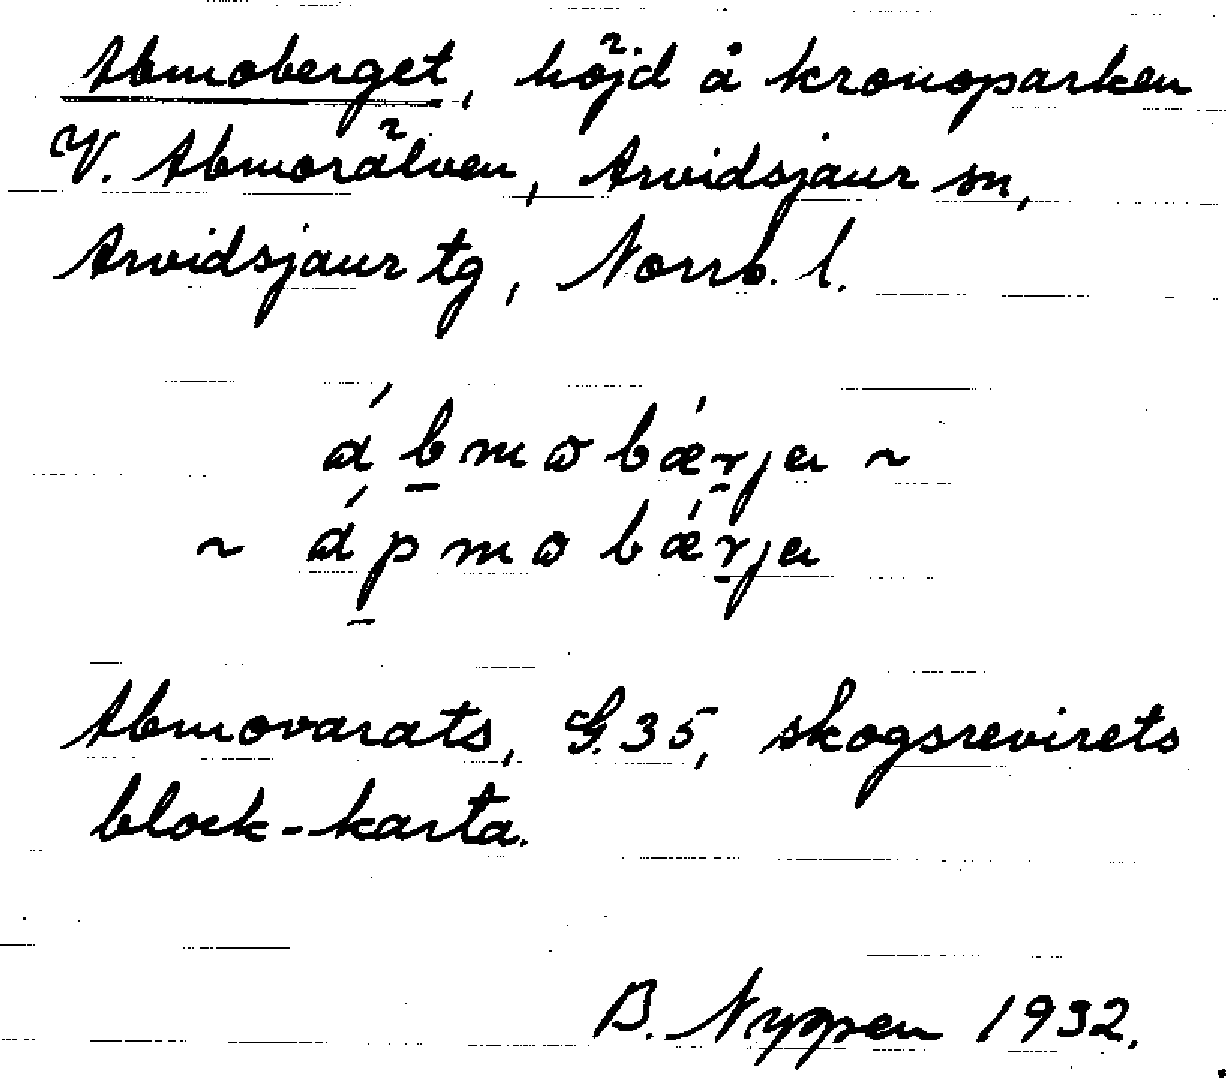 Abmoberget, höjd å kronoparken
V. Abmorälven, Arvidsjaur sn,
Arvidsjaur tg, Norrb. l.
ábmobǽrja ~
~ ápmobǽrja
Abmovarats, G.35, skogsrevirets
block-karta.
B. Nyppen 1932.